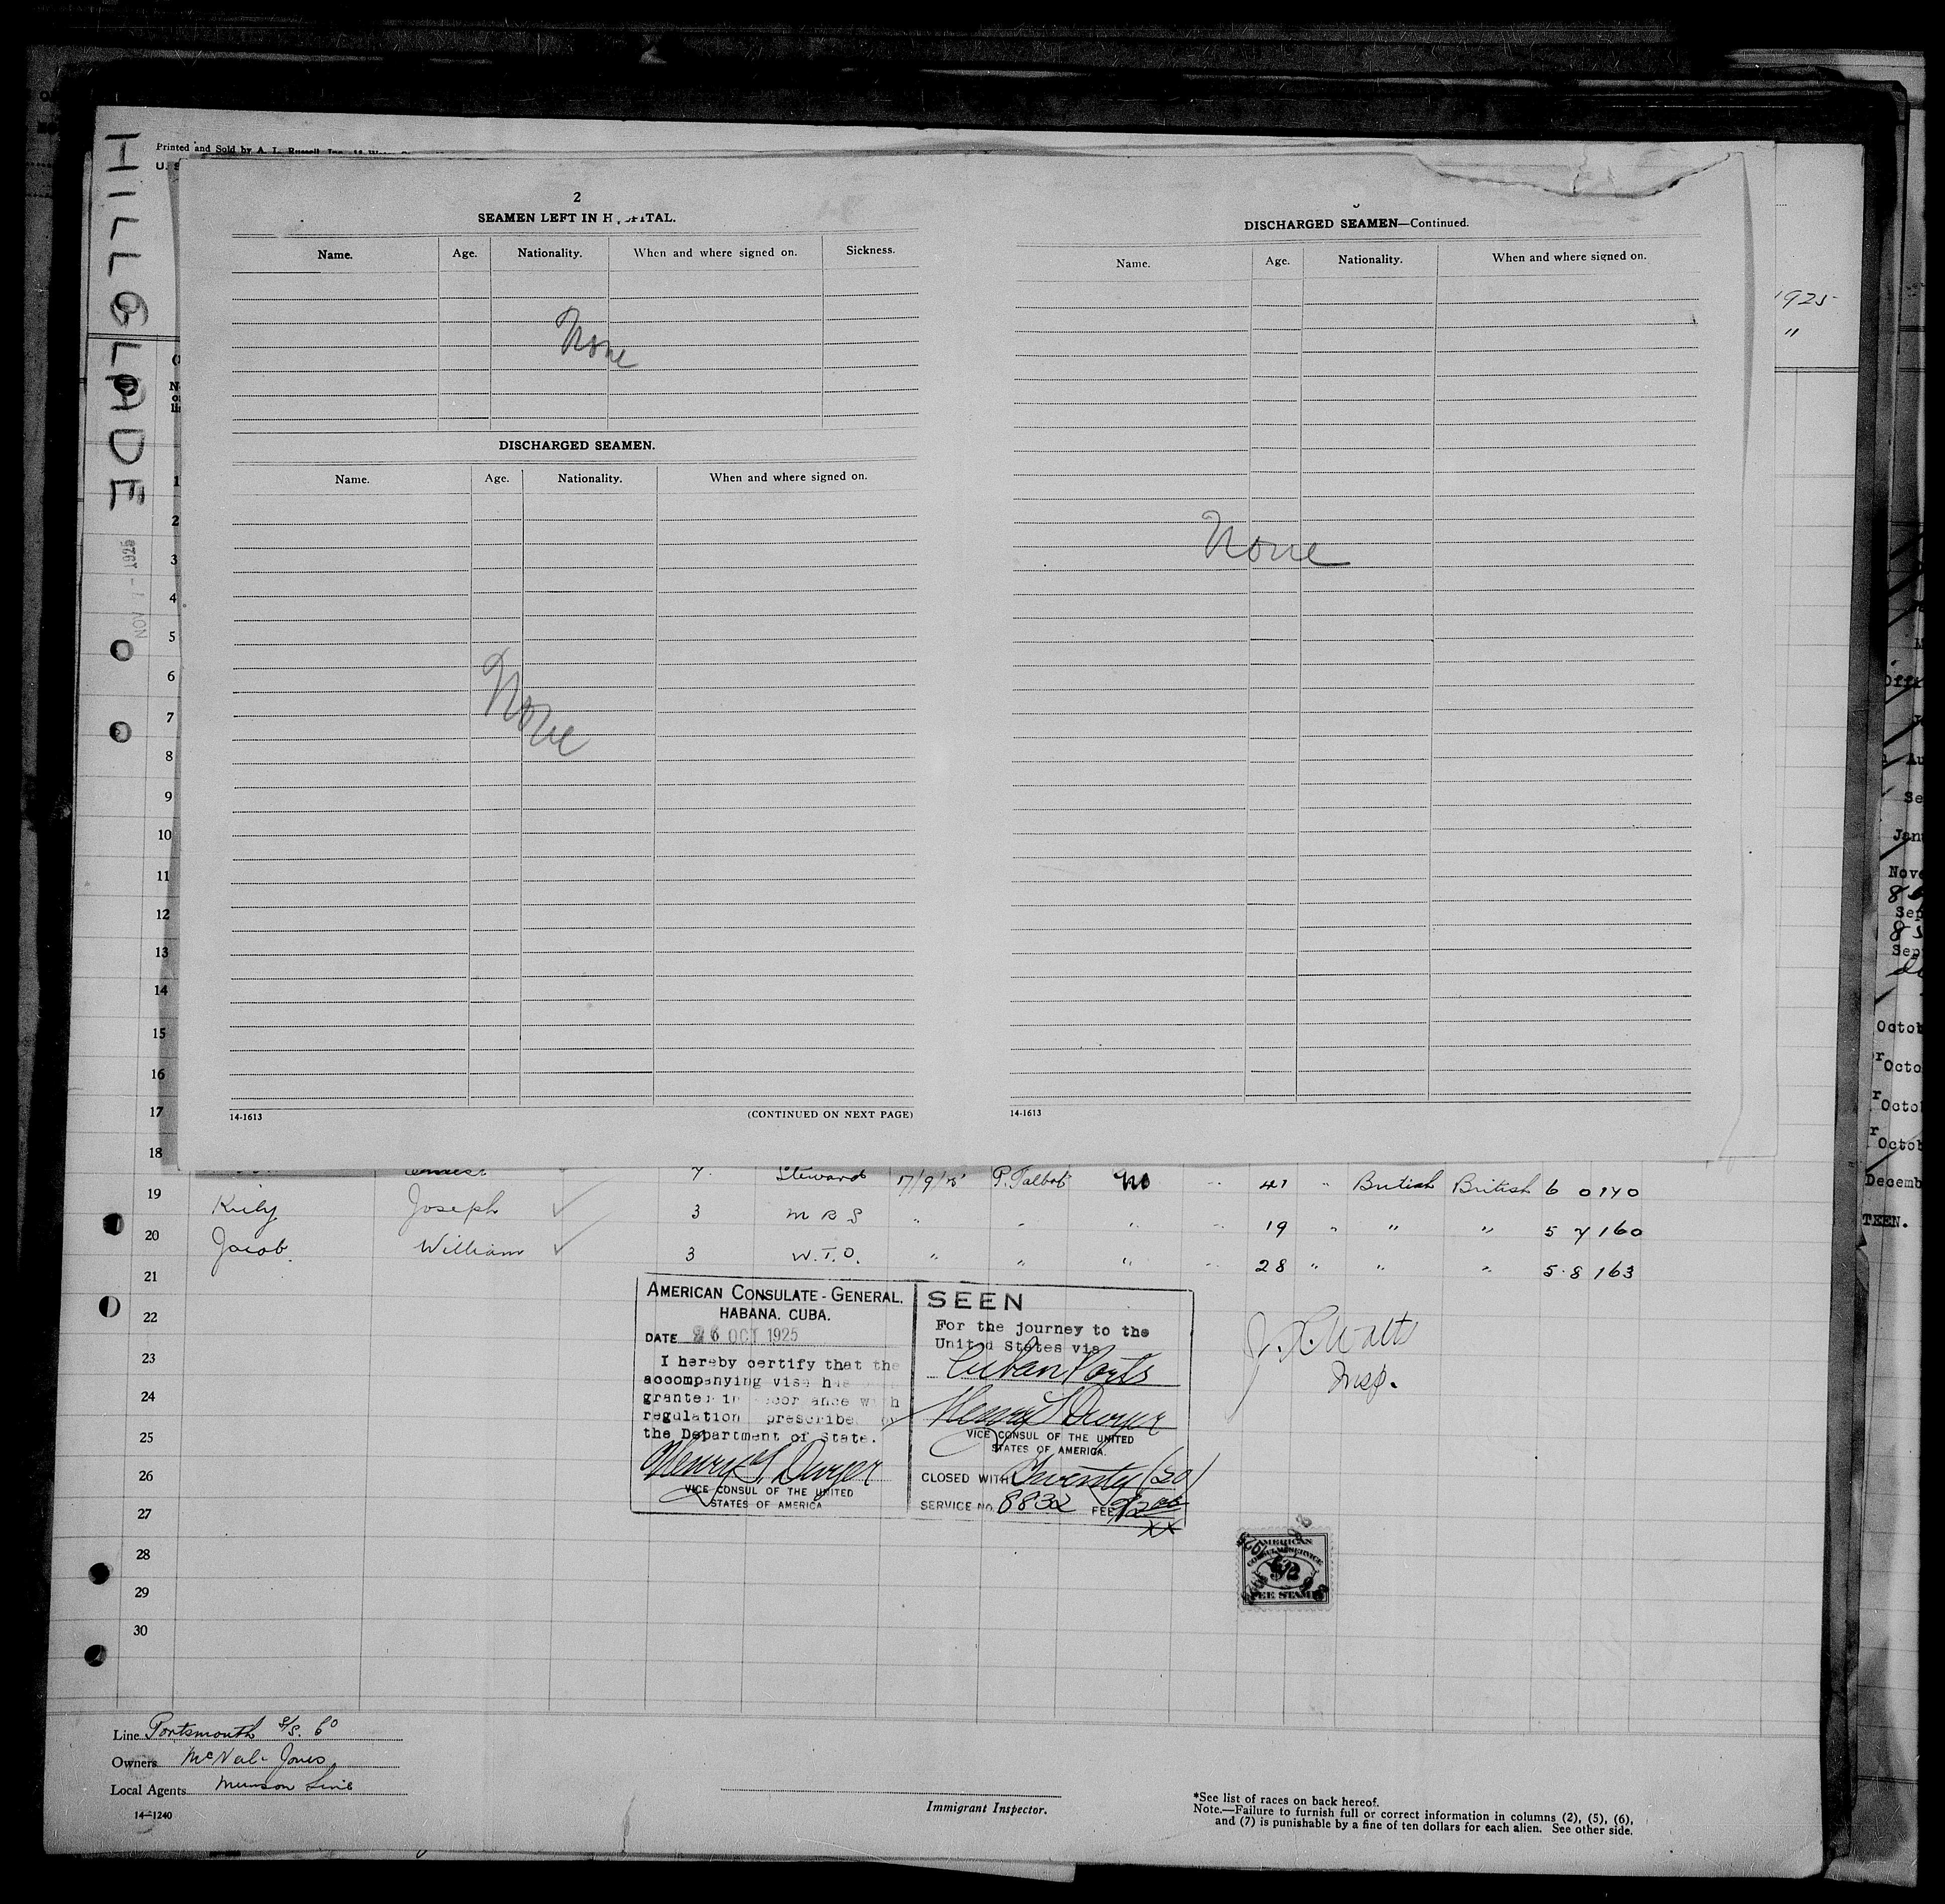 HILLGLADE
NOV 7 - 1925
Printed and Sold by A. L. Russell, Inc.
1925
"
2
SEAMEN LEFT IN HOSPITAL.
Name. Age. Nationality. When and where signed on. Sickness.
None
DISCHARGED SEAMEN.
Name. Age. Nationality. When and where signed on.
None
14-1613 (CONTINUED ON NEXT PAGE)
DISCHARGED SEAMEN—Continued.
Name. Age. Nationality. When and where signed on.
None
14-1613
1
2
3
4
5
6
7
8
9
10
11
12
13
14
15
16
17
18
Ernest 7. Steward 17/9/25 P. Talbot No " 41 " British British 6 0 140
19 Kiely Joseph ✓ 3 M R S " " " " 19 " " " 5 7 160
20 Jacob William ✓ 3 W.T.O. " " " " 28 " " " 5 8 163
21
22
23
24
25
26
27
28
29
30
AMERICAN CONSULATE-GENERAL.
HABANA. CUBA.
DATE 26 OCT 1925
I hereby certify that the
accompanying vise has
granted in accordance with
regulation prescribed by
the Department of State.
Henry T. Dwyer
VICE CONSUL OF THE UNITED
STATES OF AMERICA
SEEN
For the journey to the
United States via
Cuban Ports
Henry T. Dwyer
VICE CONSUL OF THE UNITED
STATES OF AMERICA.
CLOSED WITH Twenty (20)
SERVICE NO. 8832 FEE $2.00
XX
J. R. Watts
Insp.
AMERICAN
CONSULAR SERVICE
FEE STAMP
Line Portsmouth S/S. Co
Owners McNeil-Jones
Local Agents Munson Line
14-1240
Immigrant Inspector.
*See list of races on back hereof.
Note.—Failure to furnish full or correct information in columns (2), (5), (6),
and (7) is punishable by a fine of ten dollars for each alien. See other side.
Octob
Octo
Octob
Octob
Decemb
TEEN.